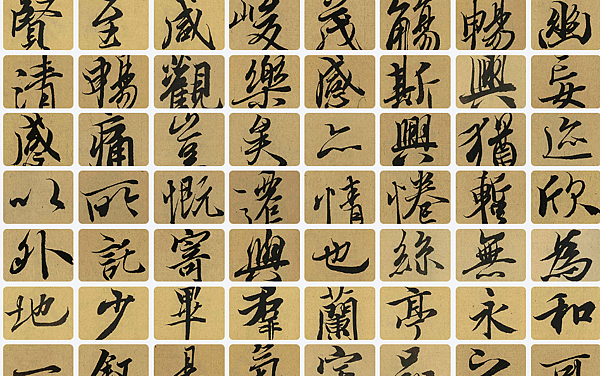 賢 至 咸 峻 茂 觴 暢 幽
清 暢 觀 樂 感 斯 興 妄
感 痛 豈 矣 亦 興 猶 迹
以 所 慨 遷 情 惓 暫 欣
外 託 寄 與 也 絲 無 為
地 少 畢 群 蘭 亭 永 和
一 是 氣